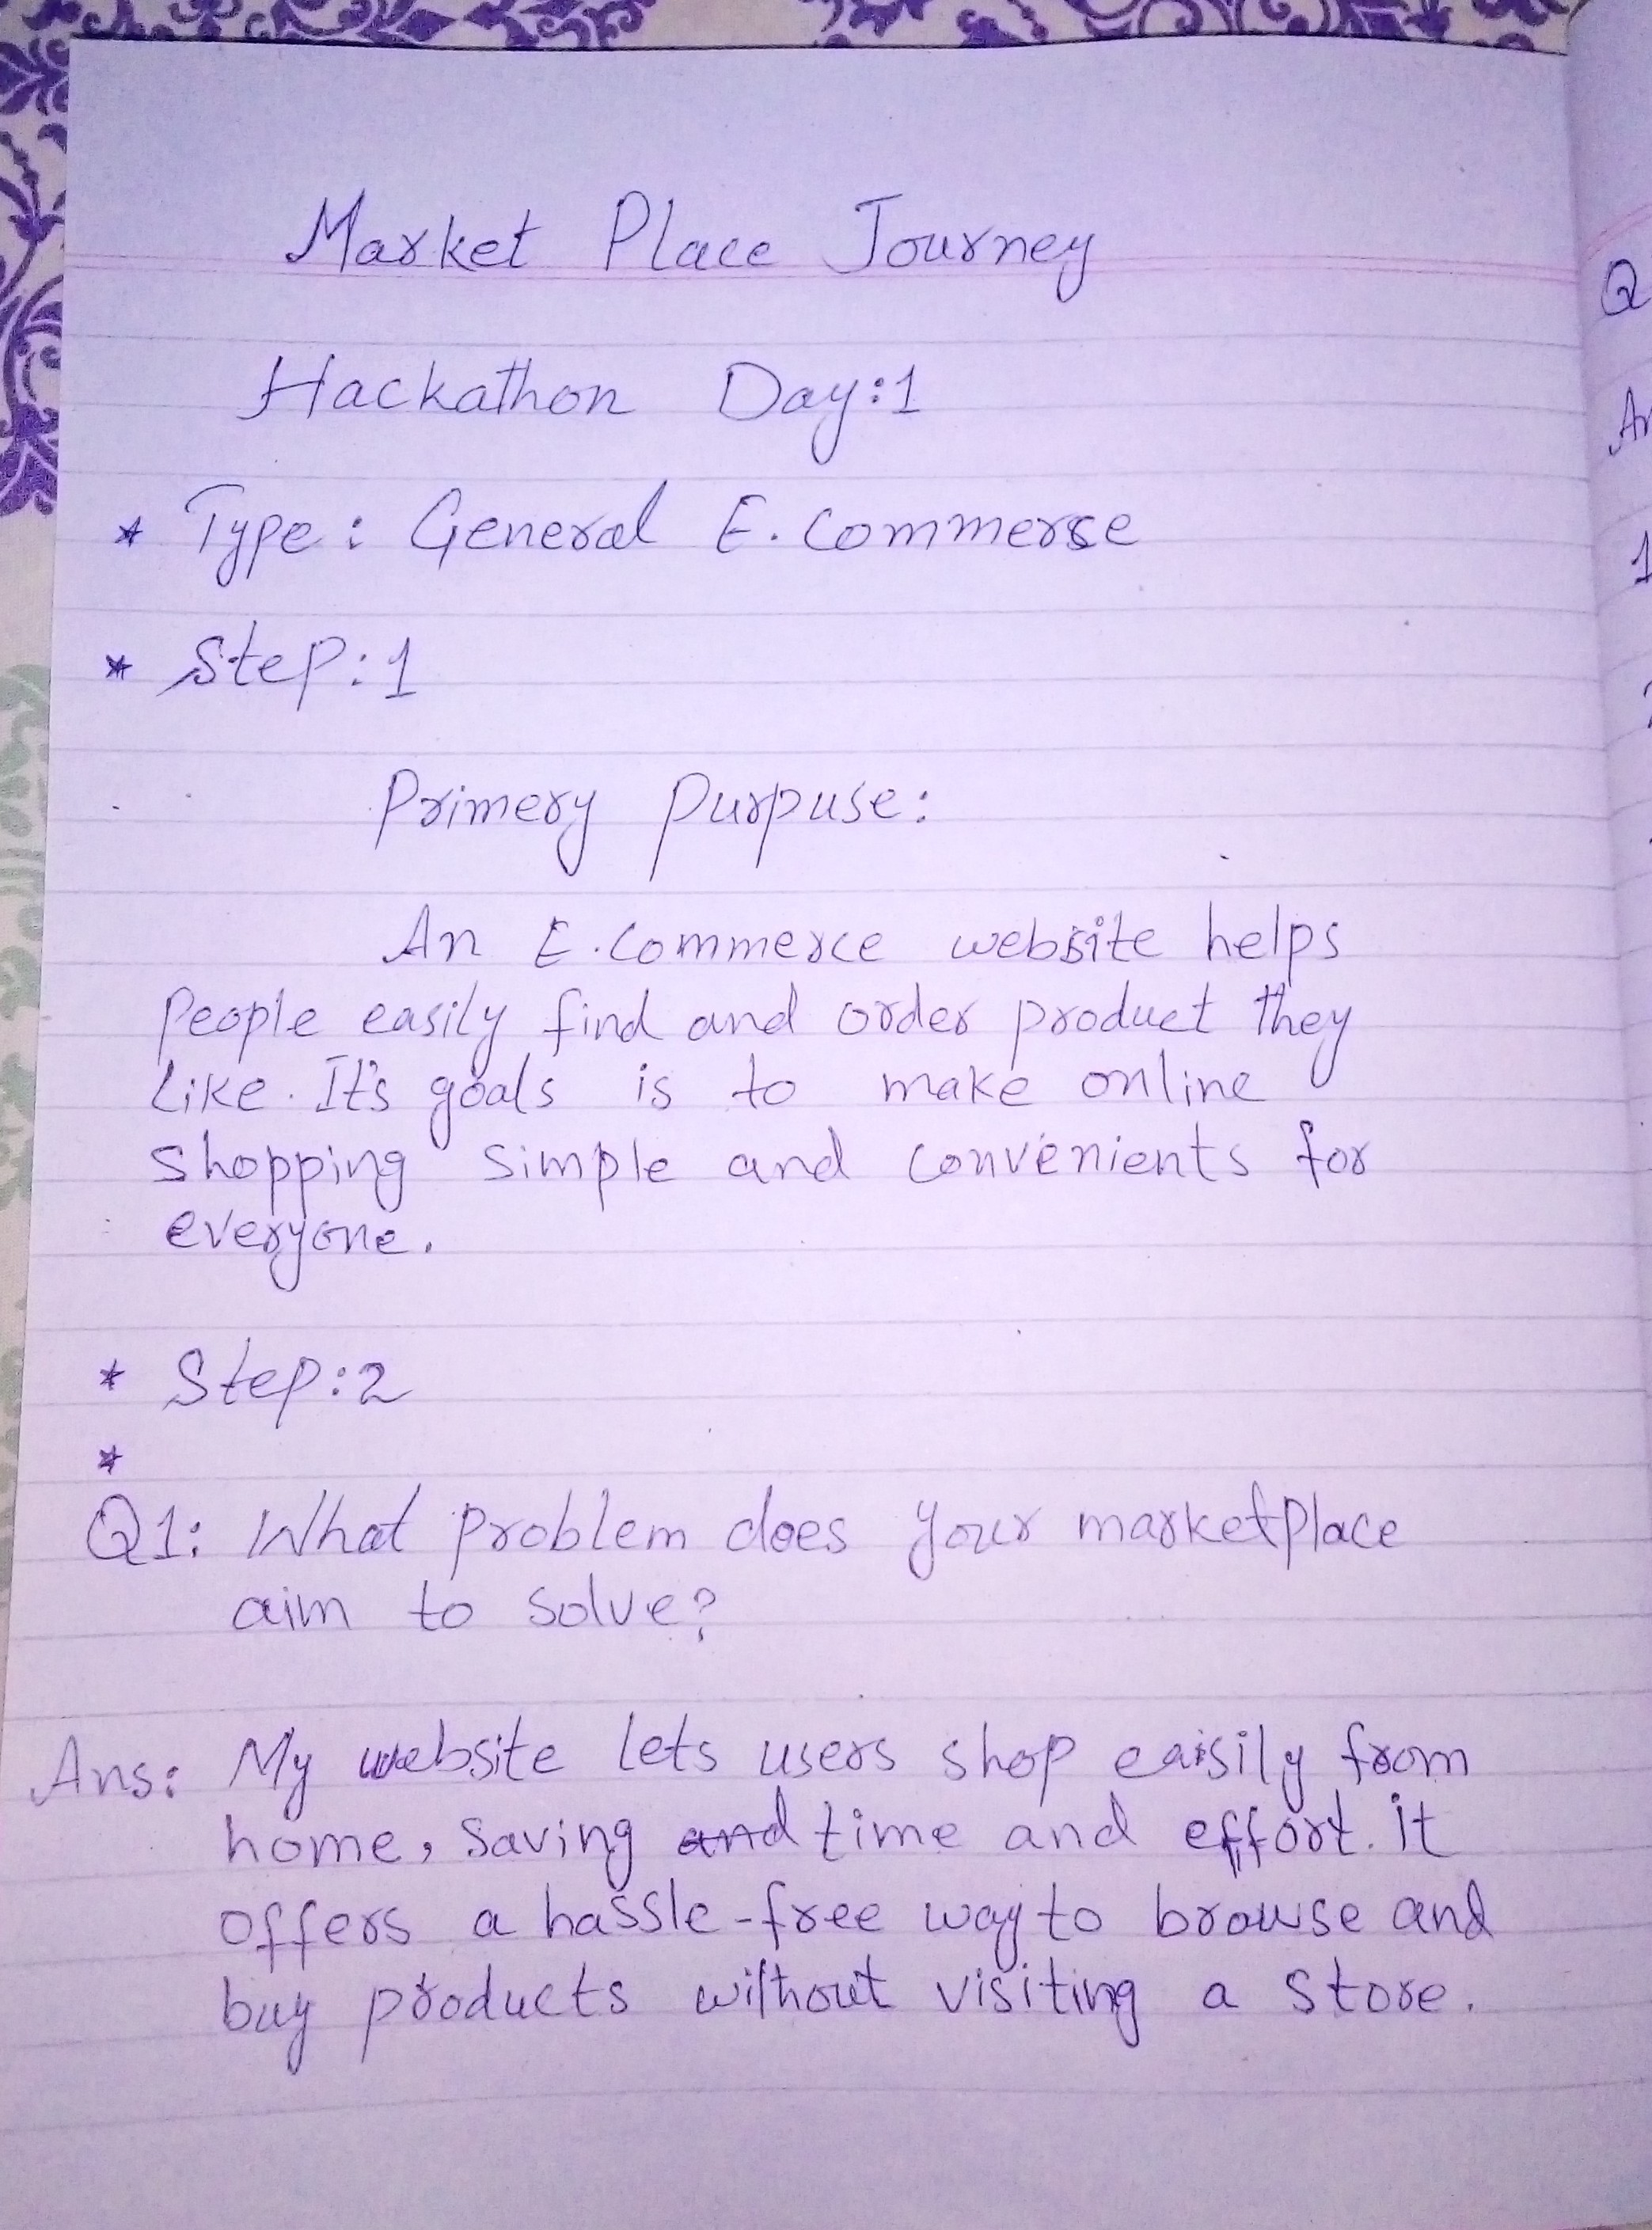 Market Place Journey
Hackathon Day:1
* Type: General E.Commerse
* Step:1
Primery Purpuse:
An E.Commerce website helps
People easily find and order product they
Like. It's goals is to make online
Shopping Simple and convenients for
everyone.
* Step:2
*
Q1: What problem does your marketplace
aim to solve?
Ans: My website lets users shop eaisily from
home, Saving and time and effort. it
offers a hassle-free way to browse and
buy products without visiting a store.
Q
An
1